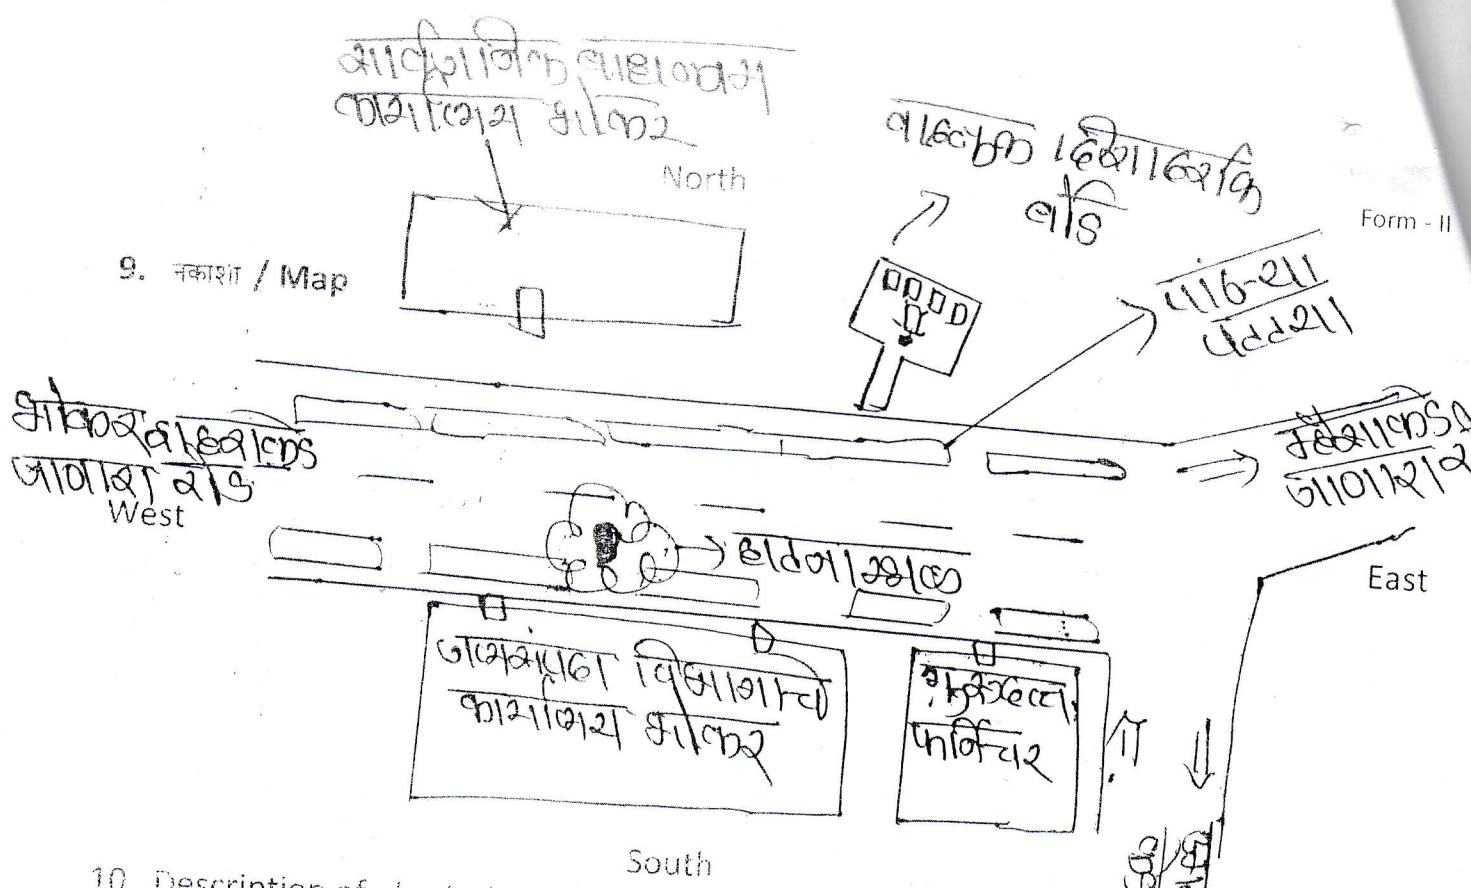 सार्वजनिक बांधकाम
कार्यालय भोकर
North
वाहतुक दिशादर्शक
बोर्ड
Form - II
9. नकाशा / Map
पांढऱ्या
पट्ट्या
भोकर शहराकडे
जाणारा रोड
West
म्हैसाकडे
जाणारा रोड
घटनास्थळ
East
जलसंपदा विभागाचे
कार्यालय भोकर
फर्निचर
South
10. Description of